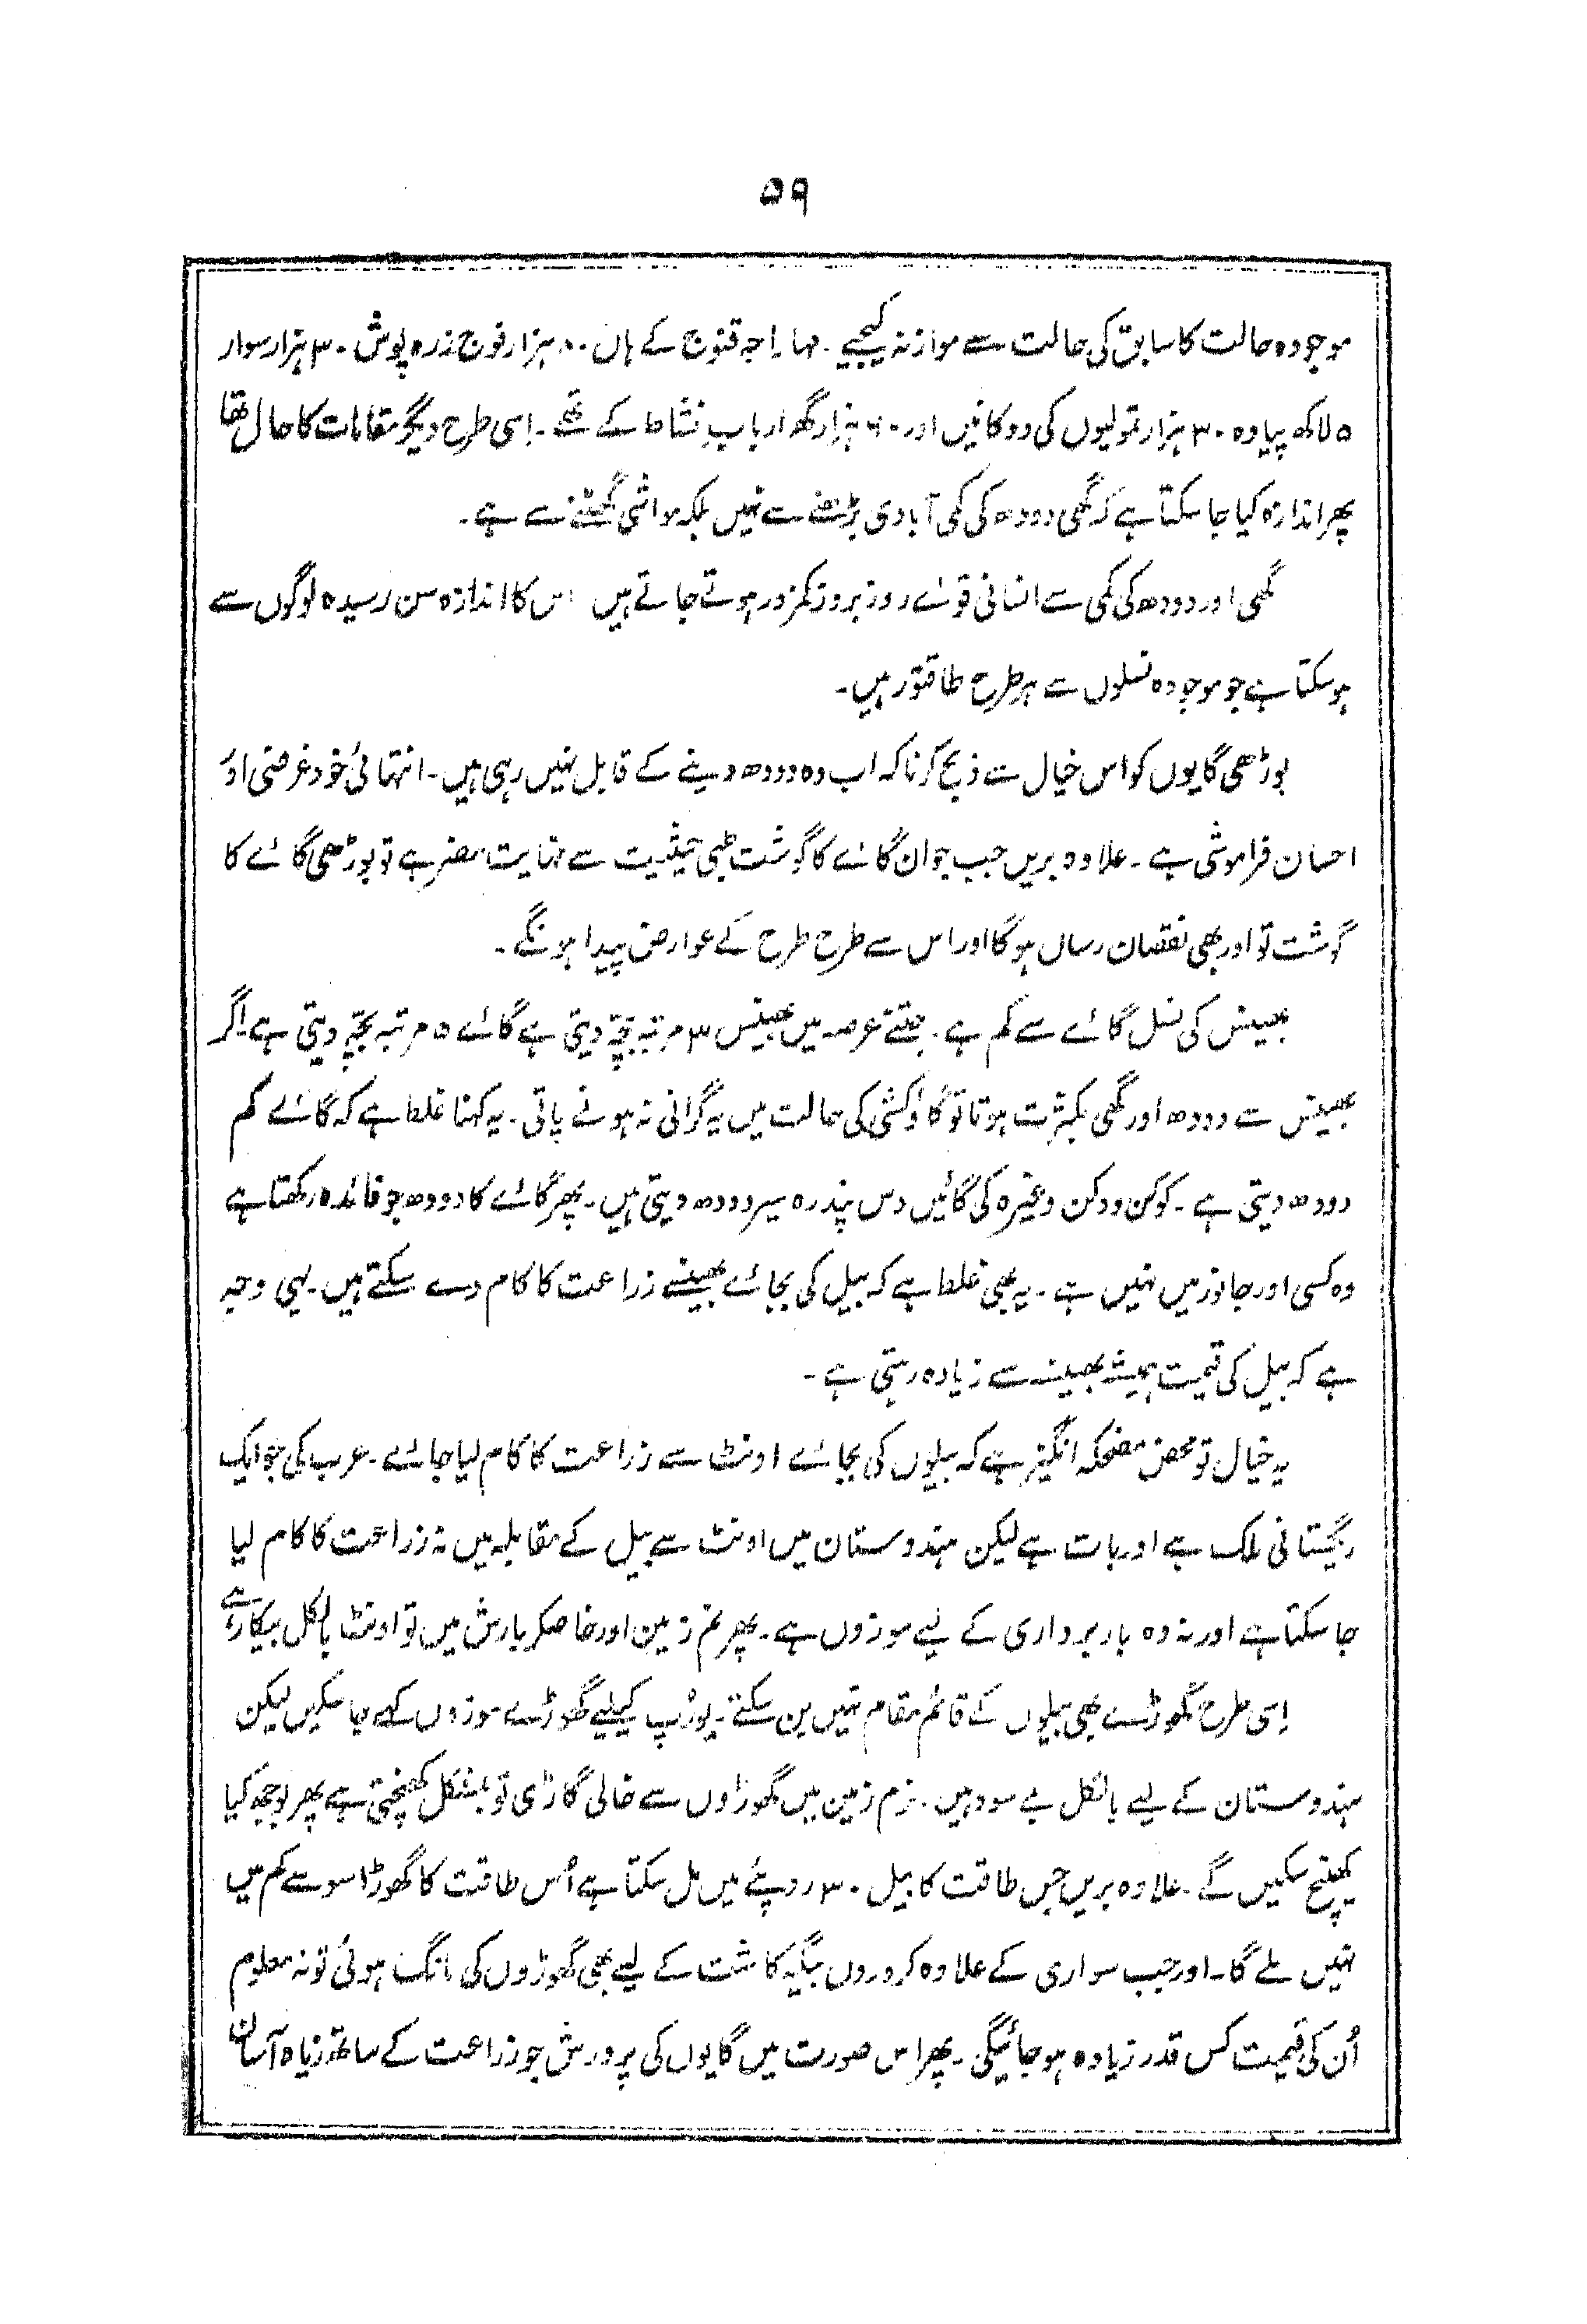 ۵۹
موجودہ حالت کا سابق کی حالت سے موازنہ کیجیے ۔ مہاراجہ قنوج کے ہاں ۸۰ ہزار فوج زرہ پوش ۳۰ ہزار سوار
۵ لاکھ پیادہ ۳۰ ہزار تمولیوں کی دوکانیں اور ۶۰ ہزار گھر اربابِ نشاط کے تھے ۔ اِسی طرح دیگر مقامات کا حال تھا
پھر اندازہ کیا جا سکتا ہے کہ گھی دودھ کی کمی آبادی بڑھنے سے نہیں بلکہ مواشی گھٹنے سے ہے ۔
گھی اور دودھ کی کمی سے انسانی قوائے روز بروز کمزور ہوتے جاتے ہیں اس کا اندازہ سن رسیدہ لوگوں سے
ہو سکتا ہے جو موجودہ نسلوں سے ہر طرح طاقتور ہیں ۔
بوڑھی گایوں کو اس خیال سے ذبح کرنا کہ اب وہ دودھ دینے کے قابل نہیں رہی ہیں ۔ انتہائی خود غرضی اور
احسان فراموشی ہے ۔ علاوہ بریں جب جوان گائے کا گوشت طبی حیثیت سے نہایت مضر ہے تو بوڑھی گائے کا
گوشت تو اور بھی نقصان رساں ہوگا اور اس سے طرح طرح کے عوارض پیدا ہونگے ۔
بھینس کی نسل گائے سے کم ہے ۔ جتنے عرصہ میں بھینس ۳ مرتبہ بچّے دیتی ہے گائے ۵ مرتبہ بچّے دیتی ہے ۔ اگر
بھینس سے دودھ اور گھی بکثرت ہوتا تو گاؤکشی کی حالت میں یہ گرانی نہ ہونے پاتی ۔ یہ کہنا غلط ہے کہ گائے کم
دودھ دیتی ہے ۔ کوکن و دکن وغیرہ کی گائیں دس پندرہ سیر دودھ دیتی ہیں ۔ پھر گائے کا دودھ جو فائدہ رکھتا ہے
وہ کسی اور جانور میں نہیں ہے ۔ یہ بھی غلط ہے کہ بیل کی بجائے بھینسے زراعت کا کام دے سکتے ہیں ۔ یہی وجہ
ہے کہ بیل کی قیمت ہمیشہ بھینسہ سے زیادہ رہتی ہے ۔
یہ خیال تو محض مضحکہ انگیز ہے کہ بیلوں کی بجائے اونٹ سے زراعت کا کام لیا جائے ۔ عرب کی جو ایک
ریگستانی ملک ہے اور بات ہے لیکن ہندوستان میں اونٹ سے بیل کے مقابلہ میں نہ زراعت کا کام لیا
جا سکتا ہے اور نہ وہ باربرداری کے لیے موزوں ہے ۔ پھر نم زمین اور خاصکر بارش میں تو اونٹ بالکل بیکار ہے
اِسی طرح گھوڑے بھی بیلوں کے قائم مقام نہیں بن سکتے ۔ یورُپ کیلیے گھوڑے موزوں کہے جا سکیں لیکن
ہندوستان کے لیے بالکل بے سود ہیں ۔ نرم زمین میں گھوڑوں سے خالی گاڑی تو بمشکل کھنچتی ہے پھر بوجھ کیا
کھینچ سکیں گے ۔ علاوہ بریں جس طاقت کا بیل ۳۰ روپئے میں مل سکتا ہے اُس طاقت کا گھوڑا سو سے کم میں
نہیں ملے گا ۔ اور جب سواری کے علاوہ کروروں بیگہ کاشت کے لیے بھی گھوڑوں کی مانگ ہوئی تو نہ معلوم
اُن کی قیمت کس قدر زیادہ ہو جائیگی ۔ پھر اس صورت میں گایوں کی پرورش جو زراعت کے ساتھ زیادہ آسان